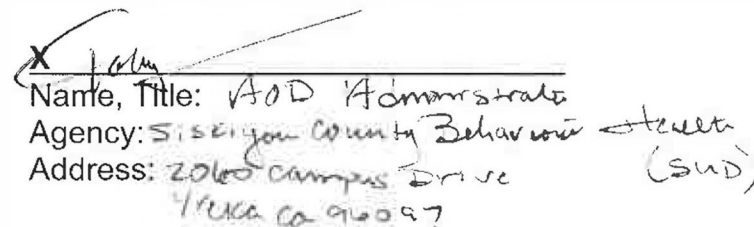 X
Name, Title: AOD Administrator
Agency: Siskiyou County Behavioral Health
Address: 2060 Campus Drive (SUD)
Yreka Ca 96097